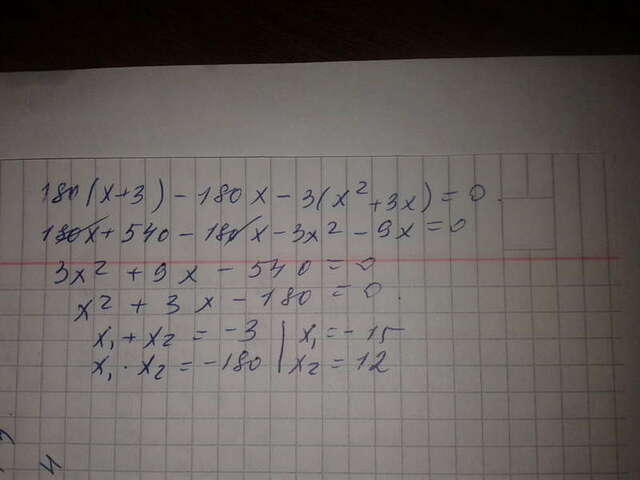 180(x+3) - 180x - 3(x² + 3x) = 0.
180x + 540 - 180x - 3x² - 9x = 0
3x² + 9x - 540 = 0
x² + 3x - 180 = 0.
x₁ + x₂ = -3 | x₁ = -15
x₁ · x₂ = -180 | x₂ = 12
4